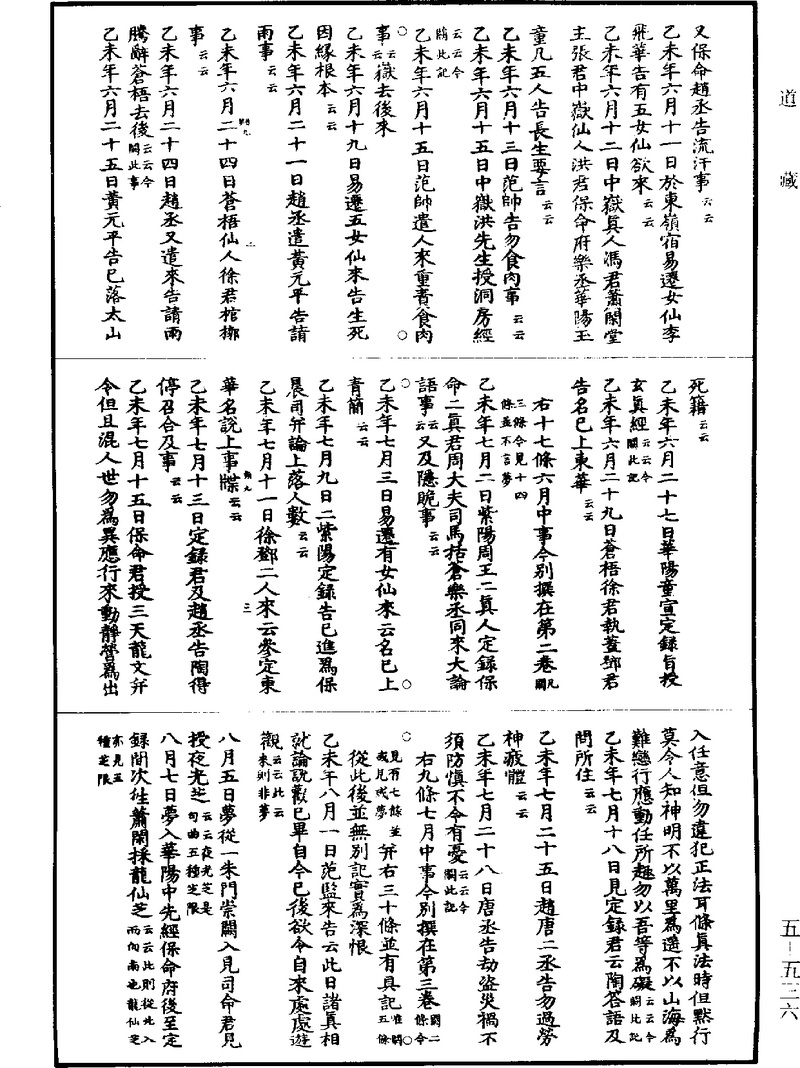 道藏
又保命趙丞告流汗事云云
乙未年六月十一日於東嶺宿易遷女仙李
飛華告有五女仙欲來云云
乙未年六月十二日中嶽真人馮君蕭閑堂
主張君中嶽仙人洪君保命府樂丞華陽玉
童凡五人告長生要言云云
乙未年六月十三日范帥告勿食肉事云云
乙未年六月十五日中嶽洪先生授洞房經
云云今闕此記
乙未年六月十五日范帥遣人來重責食肉
事云云嶽去後來
乙未年六月十九日易遷五女仙來告生死
因緣根本云云
乙未年六月二十一日趙丞遣黃元平告請
雨事云云
乙未年六月二十四日蒼梧仙人徐君棺槨
事云云
乙未年六月二十四日趙丞又遣來告請雨
騰辭蒼梧去後云云今闕此事
乙未年六月二十五日黃元平告已落太山
死籍云云
乙未年六月二十七日華陽童宣定錄旨授
玄真經云云今闕此記
乙未年六月二十九日蒼梧徐君執蓋鄧君
告名已上東華云云
右十七條六月中事今別撰在第二卷凡闕
三條今見十四條並不言夢
乙未年七月二日紫陽周王二真人定錄保
命二真君周大夫司馬括蒼樂丞同來大論
語事云云又及隱晦事云云
乙未年七月三日易遷有女仙來云名已上
青簡云云
乙未年七月九日二紫陽定錄告已進為保
晨司并論上落人數云云
乙未年七月十一日徐鄧二人來云參定東
華名說上事牒云云
乙未年七月十三日定錄君及趙丞告陶得
停召合及事云云
乙未年七月十五日保命君授三天龍文并
令但且混人世勿為異應行來動靜營為出
入任意但勿違犯正法耳條真法時但默行
莫令人知神明不以萬里為遥不以山海為
難戀行應動任所趣勿以吾等為礙云云今闕此記
乙未年七月十八日見定錄君云陶荅語及
問所住云云
乙未年七月二十五日趙唐二丞告勿過勞
神疲體云云
乙未年七月二十八日唐丞告劫盜災禍不
須防慎不令有憂云云今闕此記
右九條七月中事今別撰在第三卷闕二條今
見有七條並或見或夢并右三十條並有具記唯闕五條
從此後並無別記實為深恨
乙未年八月一日范監來告云此日諸真相
就論說歡已畢自今已後欲令自來處處遊
觀云云此云來則非夢
八月五日夢從一朱門崇闕入見司命君見
授夜光芝云云夜光芝是句曲五種芝限
八月七日夢入華陽中先經保命府後至定
錄間次往蕭閑採龍仙芝云云此則從此入而向南也龍仙芝
亦見五種芝限
五—五二六